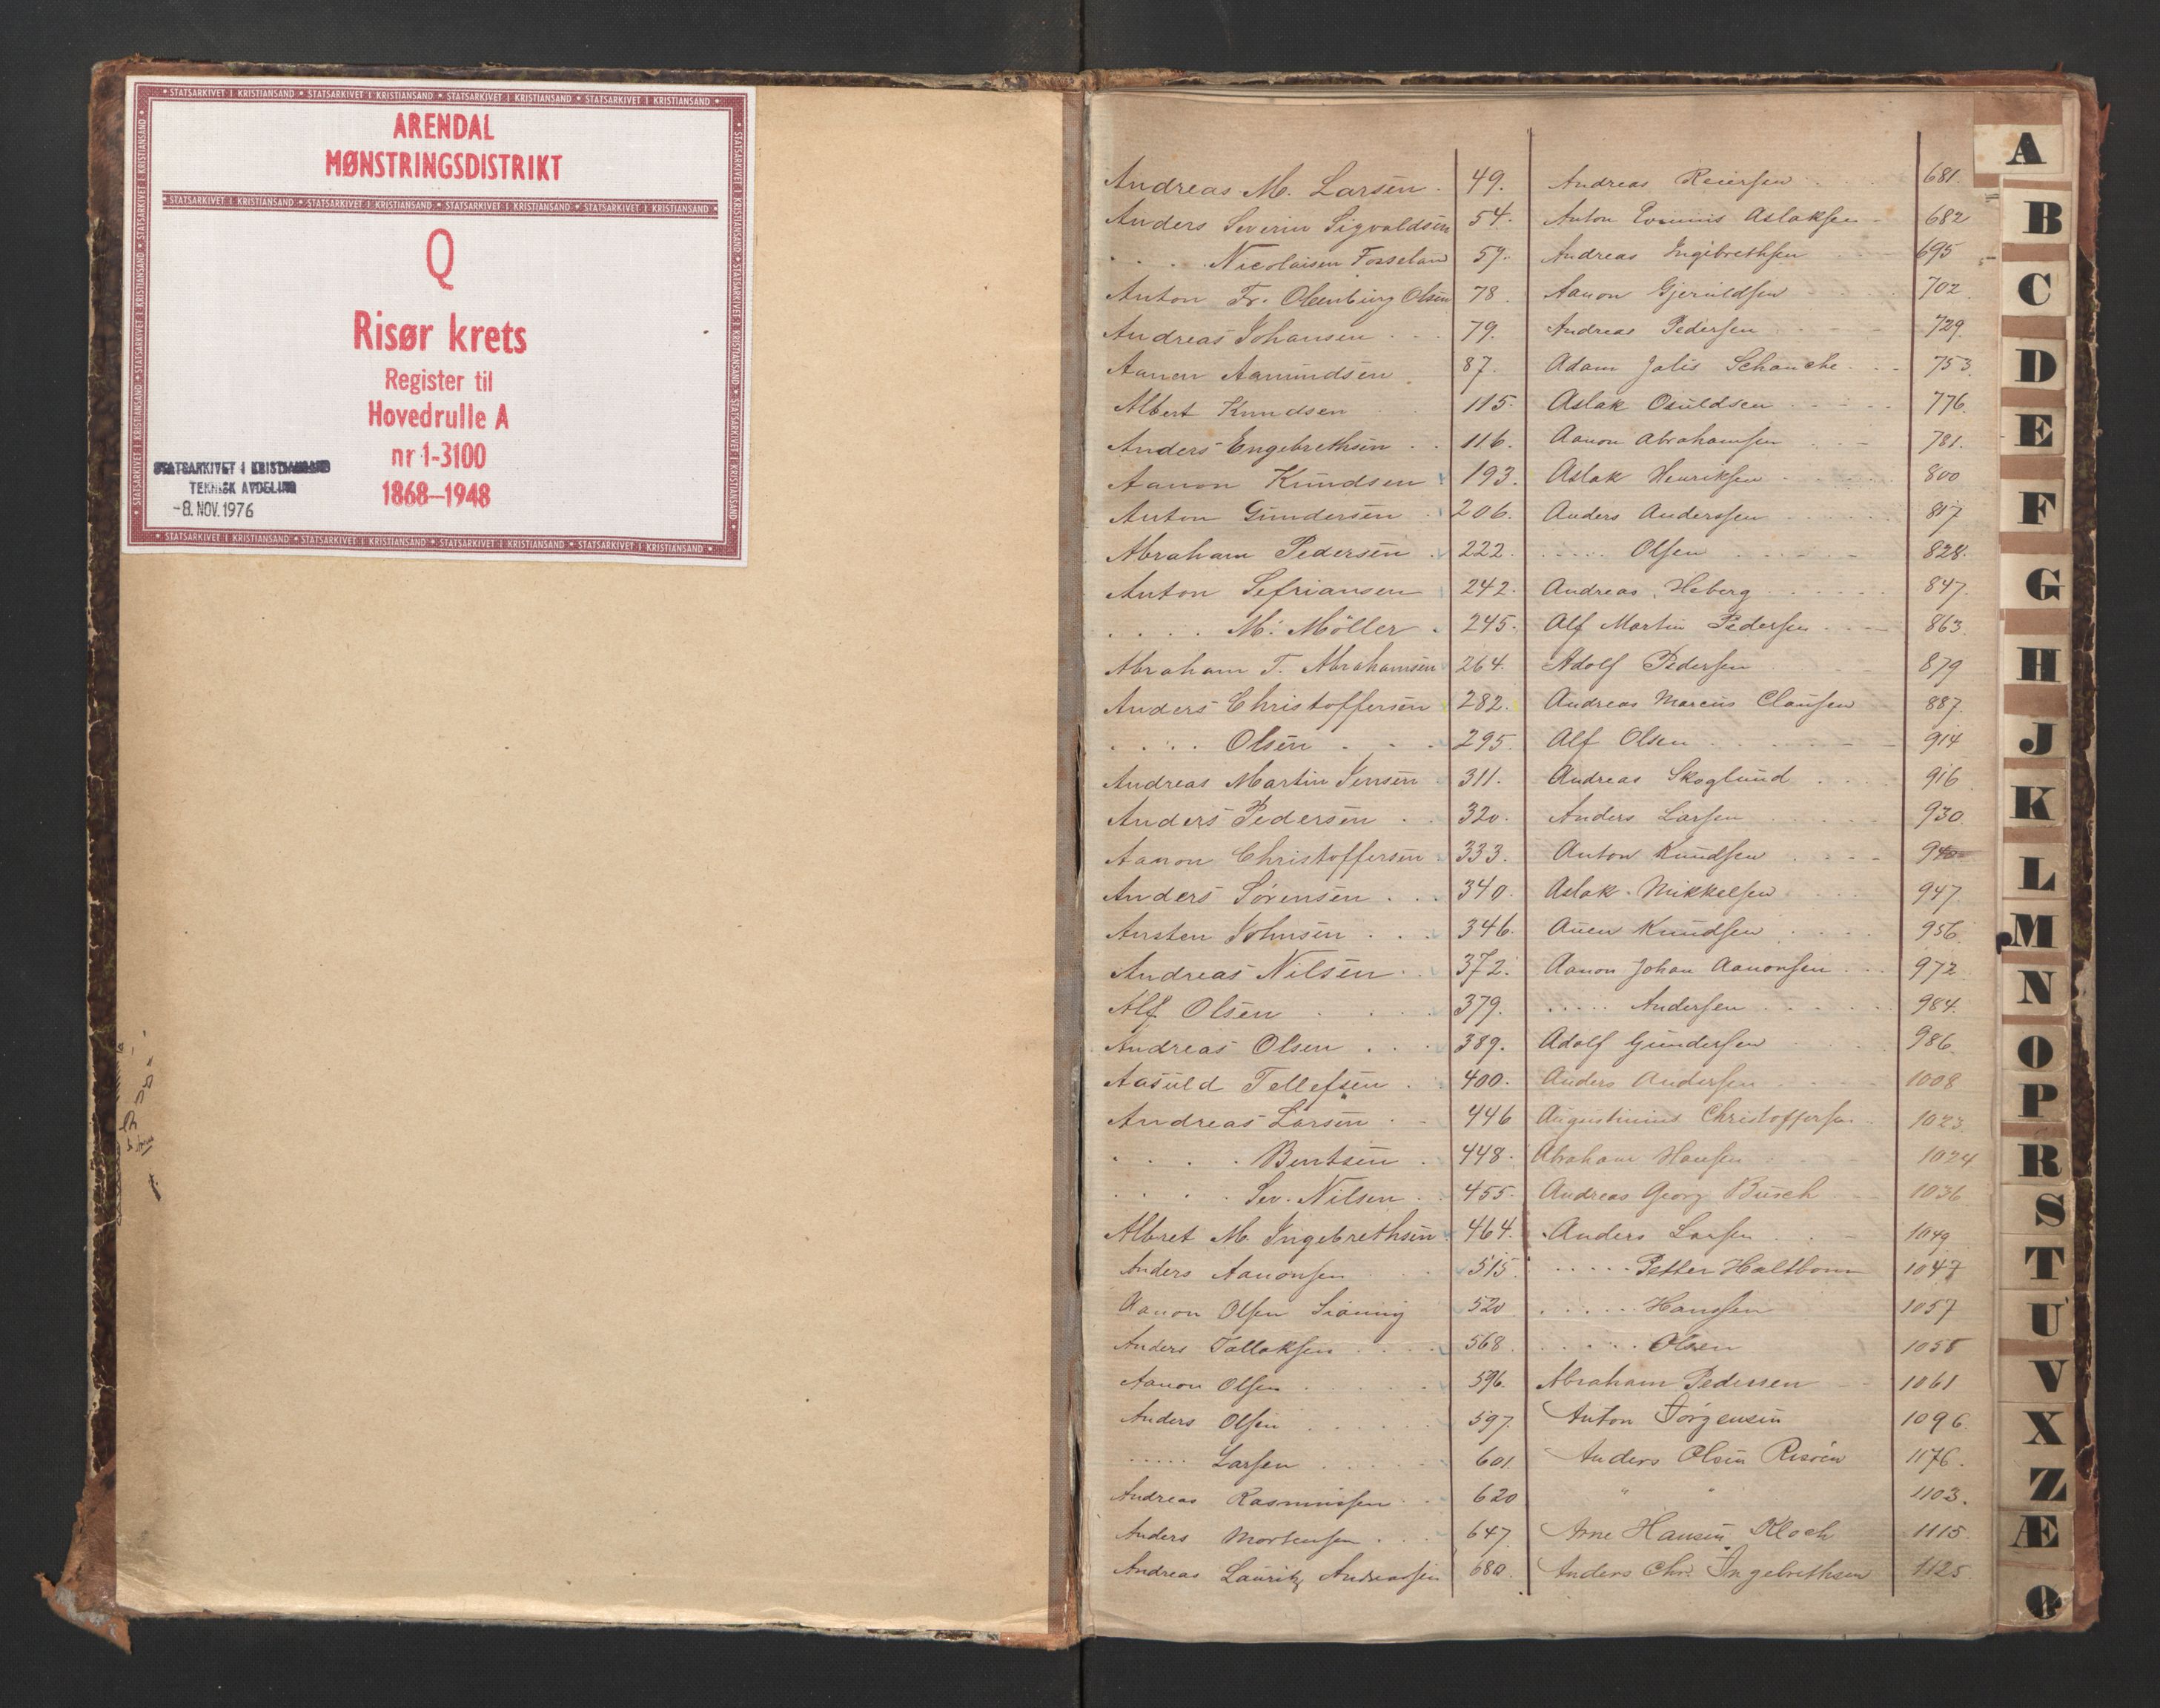 ARENDAL
MØNSTRINGSDISTRIKT
Q
Risør krets
Register til
Hovedrulle A
nr 1-3100
1868–1948
STATSARKIVET I KRISTIANSAND
TEKNISK AVDELING
-8. NOV. 1976
Andreas M. Larsen 49.
Anders Severin Sigvaldsen 54.
. . . . Nicolaisen Fosseland 57.
Anton Fr. Olenburg Olsen 78.
Andreas Johansen 79.
Aanen Aamundsen 87.
Albert Knudsen 115.
Anders Engebrethsen 116.
Aanon Knudsen 193.
Anton Gundersen 206.
Abraham Pedersen 222.
Anton Sefriansen 242.
. . . . M. Möller 245.
Abraham T. Abrahamsen 264.
Anders Christoffersen 282.
. . . . Olsen 295.
Andreas Martin Jensen 311.
Anders Pedersen 320.
Aanon Christoffersen 333.
Anders Sörensen 340.
Austen Johnsen 346.
Andreas Nilsen 372.
Alf Olsen 379.
Andreas Olsen 389.
Aasuld Tellefsen 400.
Andreas Larsen 446
. . . . Bentsen 448.
. . . . Sev. Nilsen 455.
Albret M. Ingebrethsen 464.
Anders Aanonsen 515.
Aanon Olsen 520
Anders Tallaksen 568.
Aanon Olsen 596.
Anders Olsen 597.
. . . . . Larsen 601
Andreas Rasmussen 620
Anders Mortensen 647.
Andreas Lauritz Andreassen 680.
Andreas Reiersen 681.
Anton Aslaksen 682
Andreas Engebrethsen 695
Aanon Gjeruldsen 702
Andreas Pedersen 729.
Adam Schanche 753.
Aslak Osuldsen 776.
Aanon Abrahamsen 781.
Aslak Henriksen 800
Anders Anderssen 817
. . . . . Olsen 828.
Andreas Heberg 847.
Alf Martin Pedersen 863.
Adolf Pedersen 879
Andreas Marcus Clausen 887.
Alf Olsen 914
Andreas Skoglund 916
Anders Larsen 930.
Anton Knudsen
Aslak Mikkelsen 947.
Auen Knudsen 956.
Aanon Johan Aanonsen 972
. . . . . Andersen 984.
Adolf Gundersen 986.
Anders Andersen 1008
Augustinius Christoffersen 1023.
Abraham Hansen 1024
Andreas Georg Busch 1036
Anders Larsen 1049
. . . . . Petter Holtbom 1047
. . . . . Hanssen 1057
. . . . . Olsen 1058
Abraham Pedersen 1061
Anton Jörgensen 1096.
Anders Olsen Risöen 1176.
" " 1103.
Arne Hansen Kloch 1115.
Anders Chr. Ingebrethsen 1125
A
B
C
D
E
F
G
H
J
K
L
M
N
O
P
R
S
T
U
V
X
Z
Æ
Ø